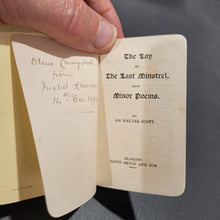 Olive Campbell
from
Mabel
14th Dec 1899
The Lay
OF
The Last Minstrel,
AND
Minor Poems.
BY
SIR WALTER SCOTT.
GLASGOW:
DAVID BRYCE AND SON